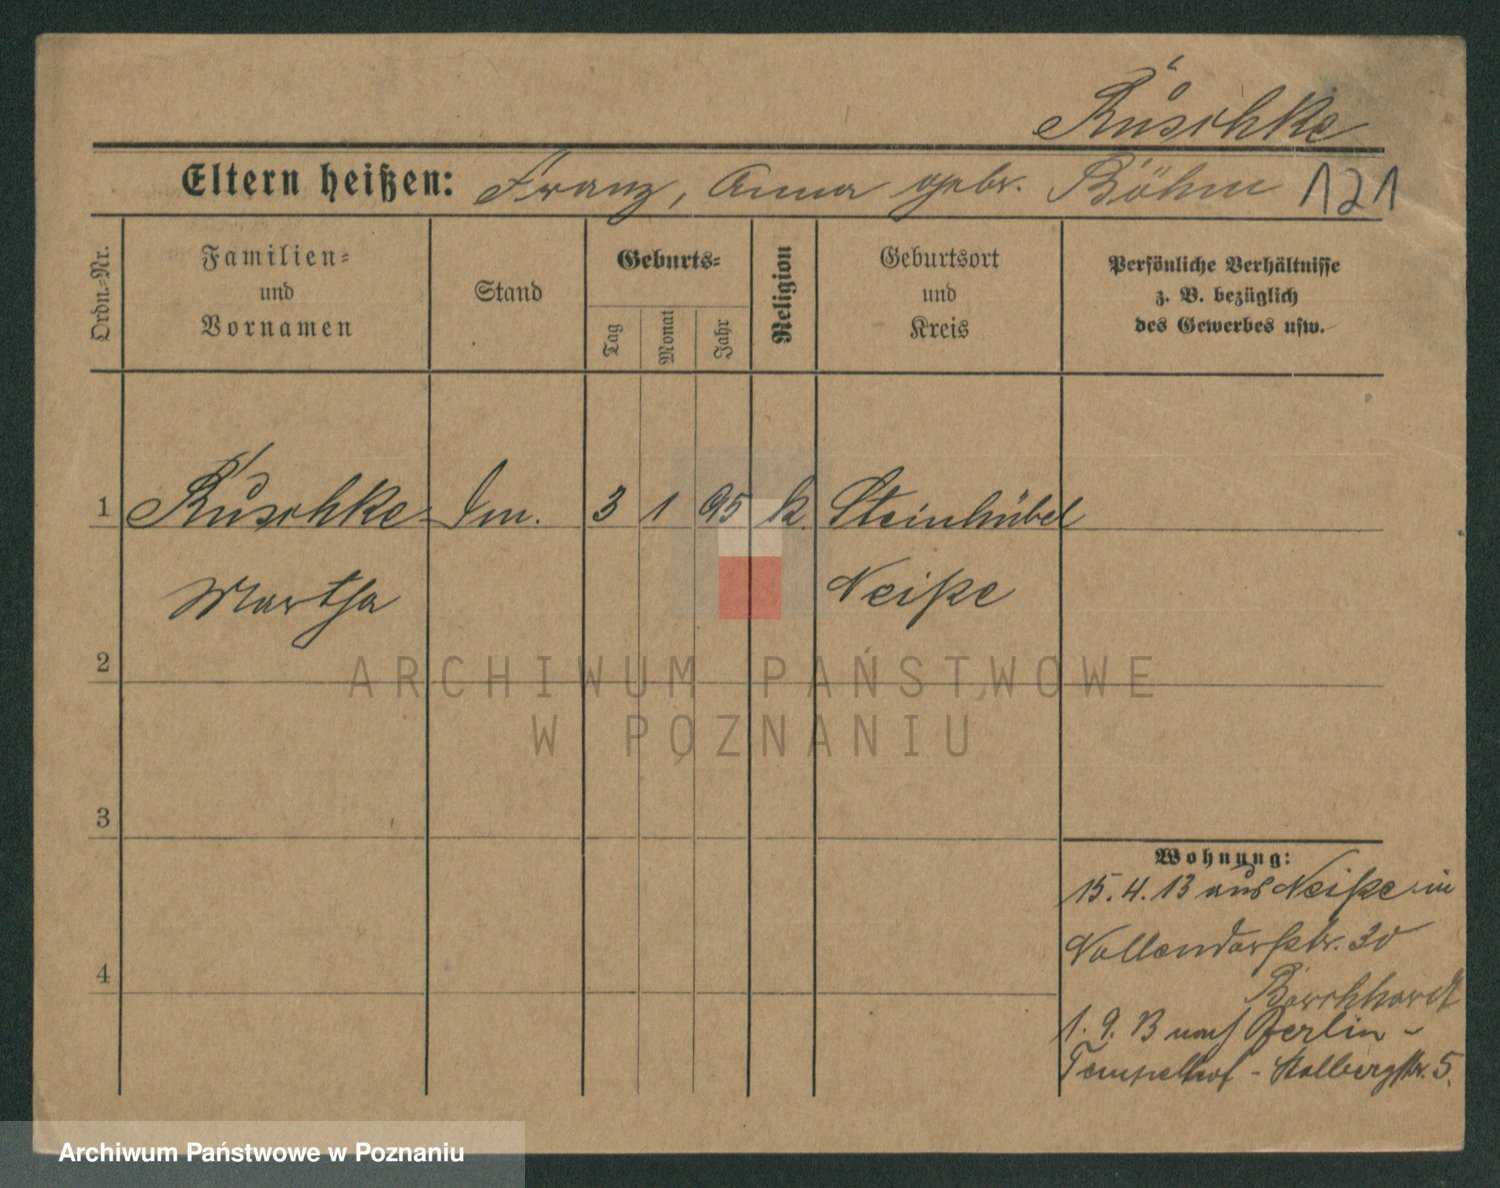 Ruschke
Eltern heißen: Franz, Anna gebr. Böhm 121
Ordn.=Nr.
Familien=
und
Vornamen
Stand
Geburts=
Tag
Monat
Jahr
Religion
Geburtsort
und
Kreis
Persönliche Verhältnisse
z. B. bezüglich
des Gewerbes usw.
1 Ruschke 3 1 95 k. Steinhübel
Martha Neiße
2
3
4
Wohnung:
15.4.13 aus Neiße in
Nollendorfstr. 30
1.9.13 nach Berlin -
Tempelhof - Stolbergstr. 5.
ARCHIWUM PAŃSTWOWE
W POZNANIU
Archiwum Państwowe w Poznaniu